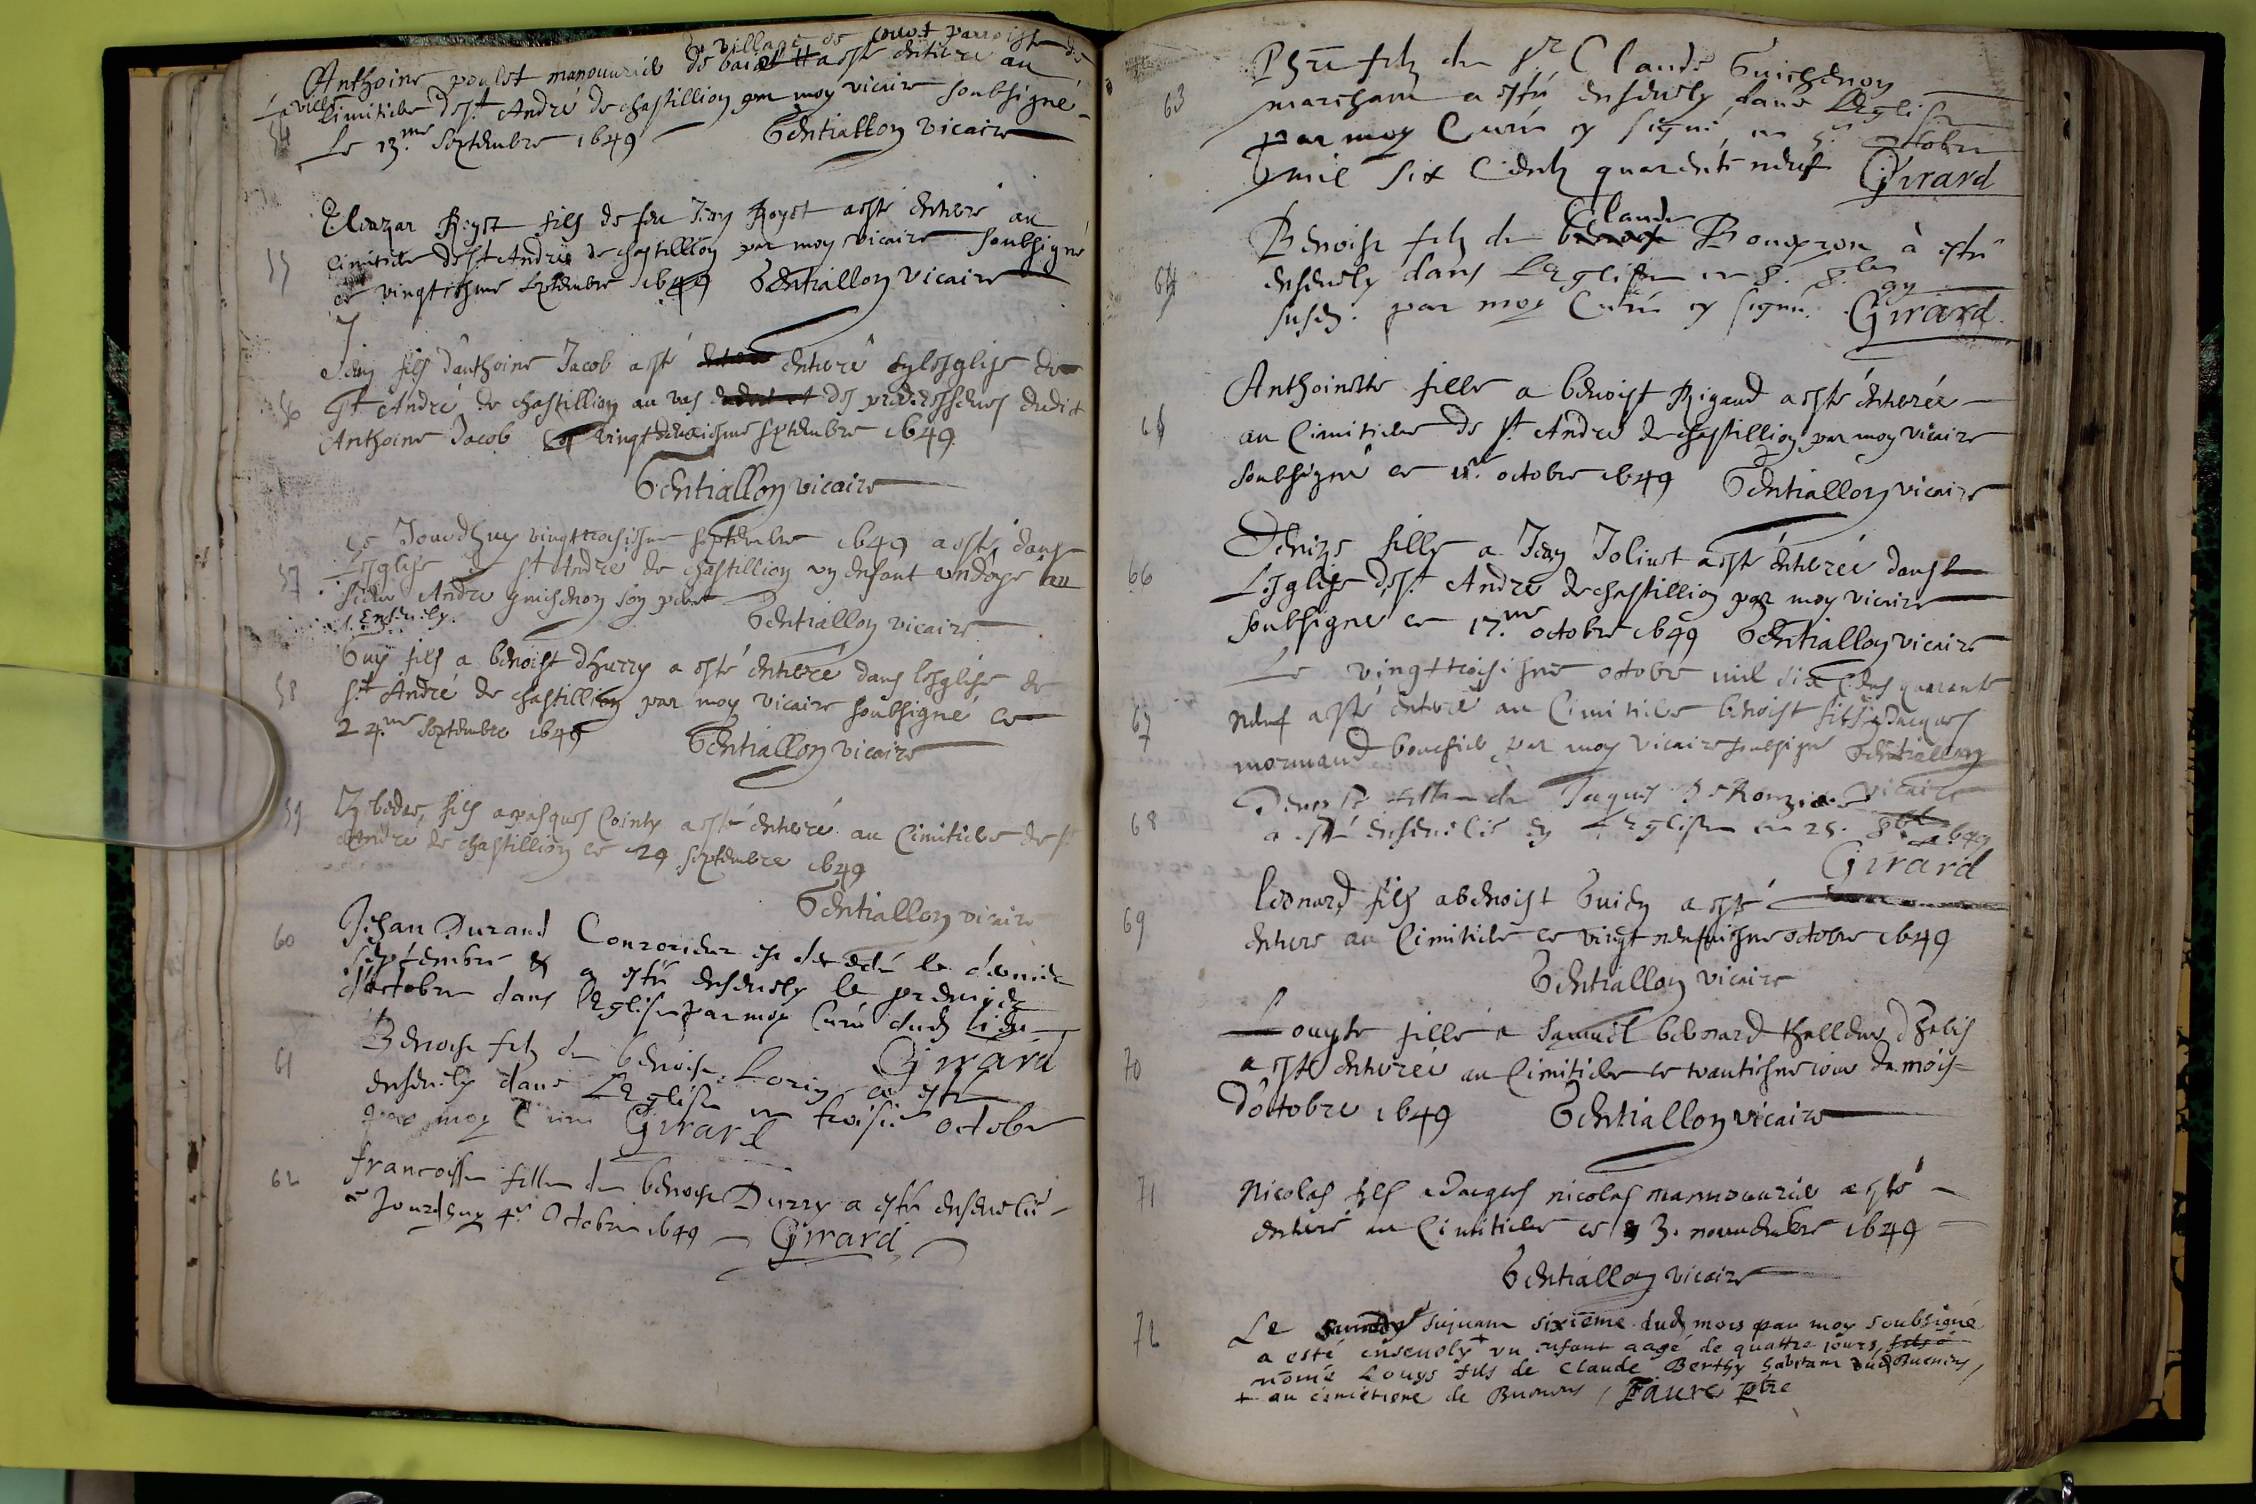 du village de paroisse de
Anthoine poulet manouvrier de a esté enterré au
La ville
Cimitiere de st André de chastillion par moy vicaire soubsigné
54
Le 13.me septembre 1649 Gentiallon vicaire
Eleazar Royst fils de feu Jean Royst a esté enterré au
55
cimitiere de st André de chastillion par moy vicaire soubsigné
ce vingtiesme septembre 1649 Gentiallon vicaire
Jean fils d'anthoine Jacob a esté enterré en lesglise de
56
St André de chastillion au vas des predecesseurs dudict
Anthoine Jacob ce vingt deuxiesme septembre 1649
Gentiallon vicaire
ce Jourdhuy vingttroisiesme septembre 1649 a esté dans
57
Lesglise de st André de chastillion un enfant ondoyé au
sieur André guichenon son pere Gentiallon vicaire
Ensevely.
Guy fils a benoist dhurry a esté enterré dans lesglise de
58
st André de chastillion par moy vicaire soubsigné ce
24.me septembre 1649 Gentiallon vicaire
59
fils a pasques Cointy a esté enterré au Cimitiere de st
André de chastillion ce 29 septembre 1649
Gentiallon vicaire
60
Jehan Durand Conroieur est decedé le dernier
septembre & a esté ensevely le premier
d'octobre dans l'Eglise par moy Curé dud lieu
Girard
61
Benoist filz de benoist Lorin a esté
ensevely dans L'Eglise ce troisie octobre
par moy Curé Girard
62
francoise fille de benoist Durry a esté ensevelie
ce Jourdhuy 4e Octobre 1649 Girard
63
filz de Sr Claude Guichenon
marchant a esté ensevely dans L'Eglise
par moy Curé cy signé ce 5e octobre
mil six Centz quarente neuf Girard
Claude
64
Benoist filz de benoist Bouveron à esté
ensevely dans L'Eglise ce 8. 8bre an
susd. par moy Curé cy signé. Girard
Anthoinette fille a benoist Rigaud a esté enterrée
65
au Cimitiere de st André de chastillion par moy vicaire
soubsigné ce octobre 1649 Gentiallon vicaire
66
Denize fille a Jean Joliuet a esté enterrée dans
Lesglise de st André de chastillion par moy vicaire
soubsigné ce 17.me octobre 1649 Gentiallon vicaire
67
Le vingttroisiesme octobre mil six Cens quarante
neuf a esté enterré au Cimitiere benoist fils a Jacques
mornand par moy vicaire soubsigné Gentiallon
vicaire
68
fille de Jaques
a esté ensevelie en L'Eglise ce 25. 8bre 1649
Girard
69
leonard fils a benoist Guidy a esté
enterré au Cimitiere ce vingt neufuiesme octobre 1649
Gentiallon vicaire
70
Louyse fille a Samuel bernard
a esté enterrée au Cimitiere ce trantiesme iour du mois
D'octobre 1649 Gentiallon vicaire
71
Nicolas fils a Jacques nicolas mannouurier a esté
enterré au Cimitiere ce 3. nouembre 1649
Gentiallon vicaire
72
Le samedy suiuant sixieme dud mois par moy soubsigné
a esté enseuely + un enfant aagé de quattre jours, fils à
nomé Louys fils de Claude Berthy habitant dud Buenens,
+ au cimetiere de Buenens / Faure ptre